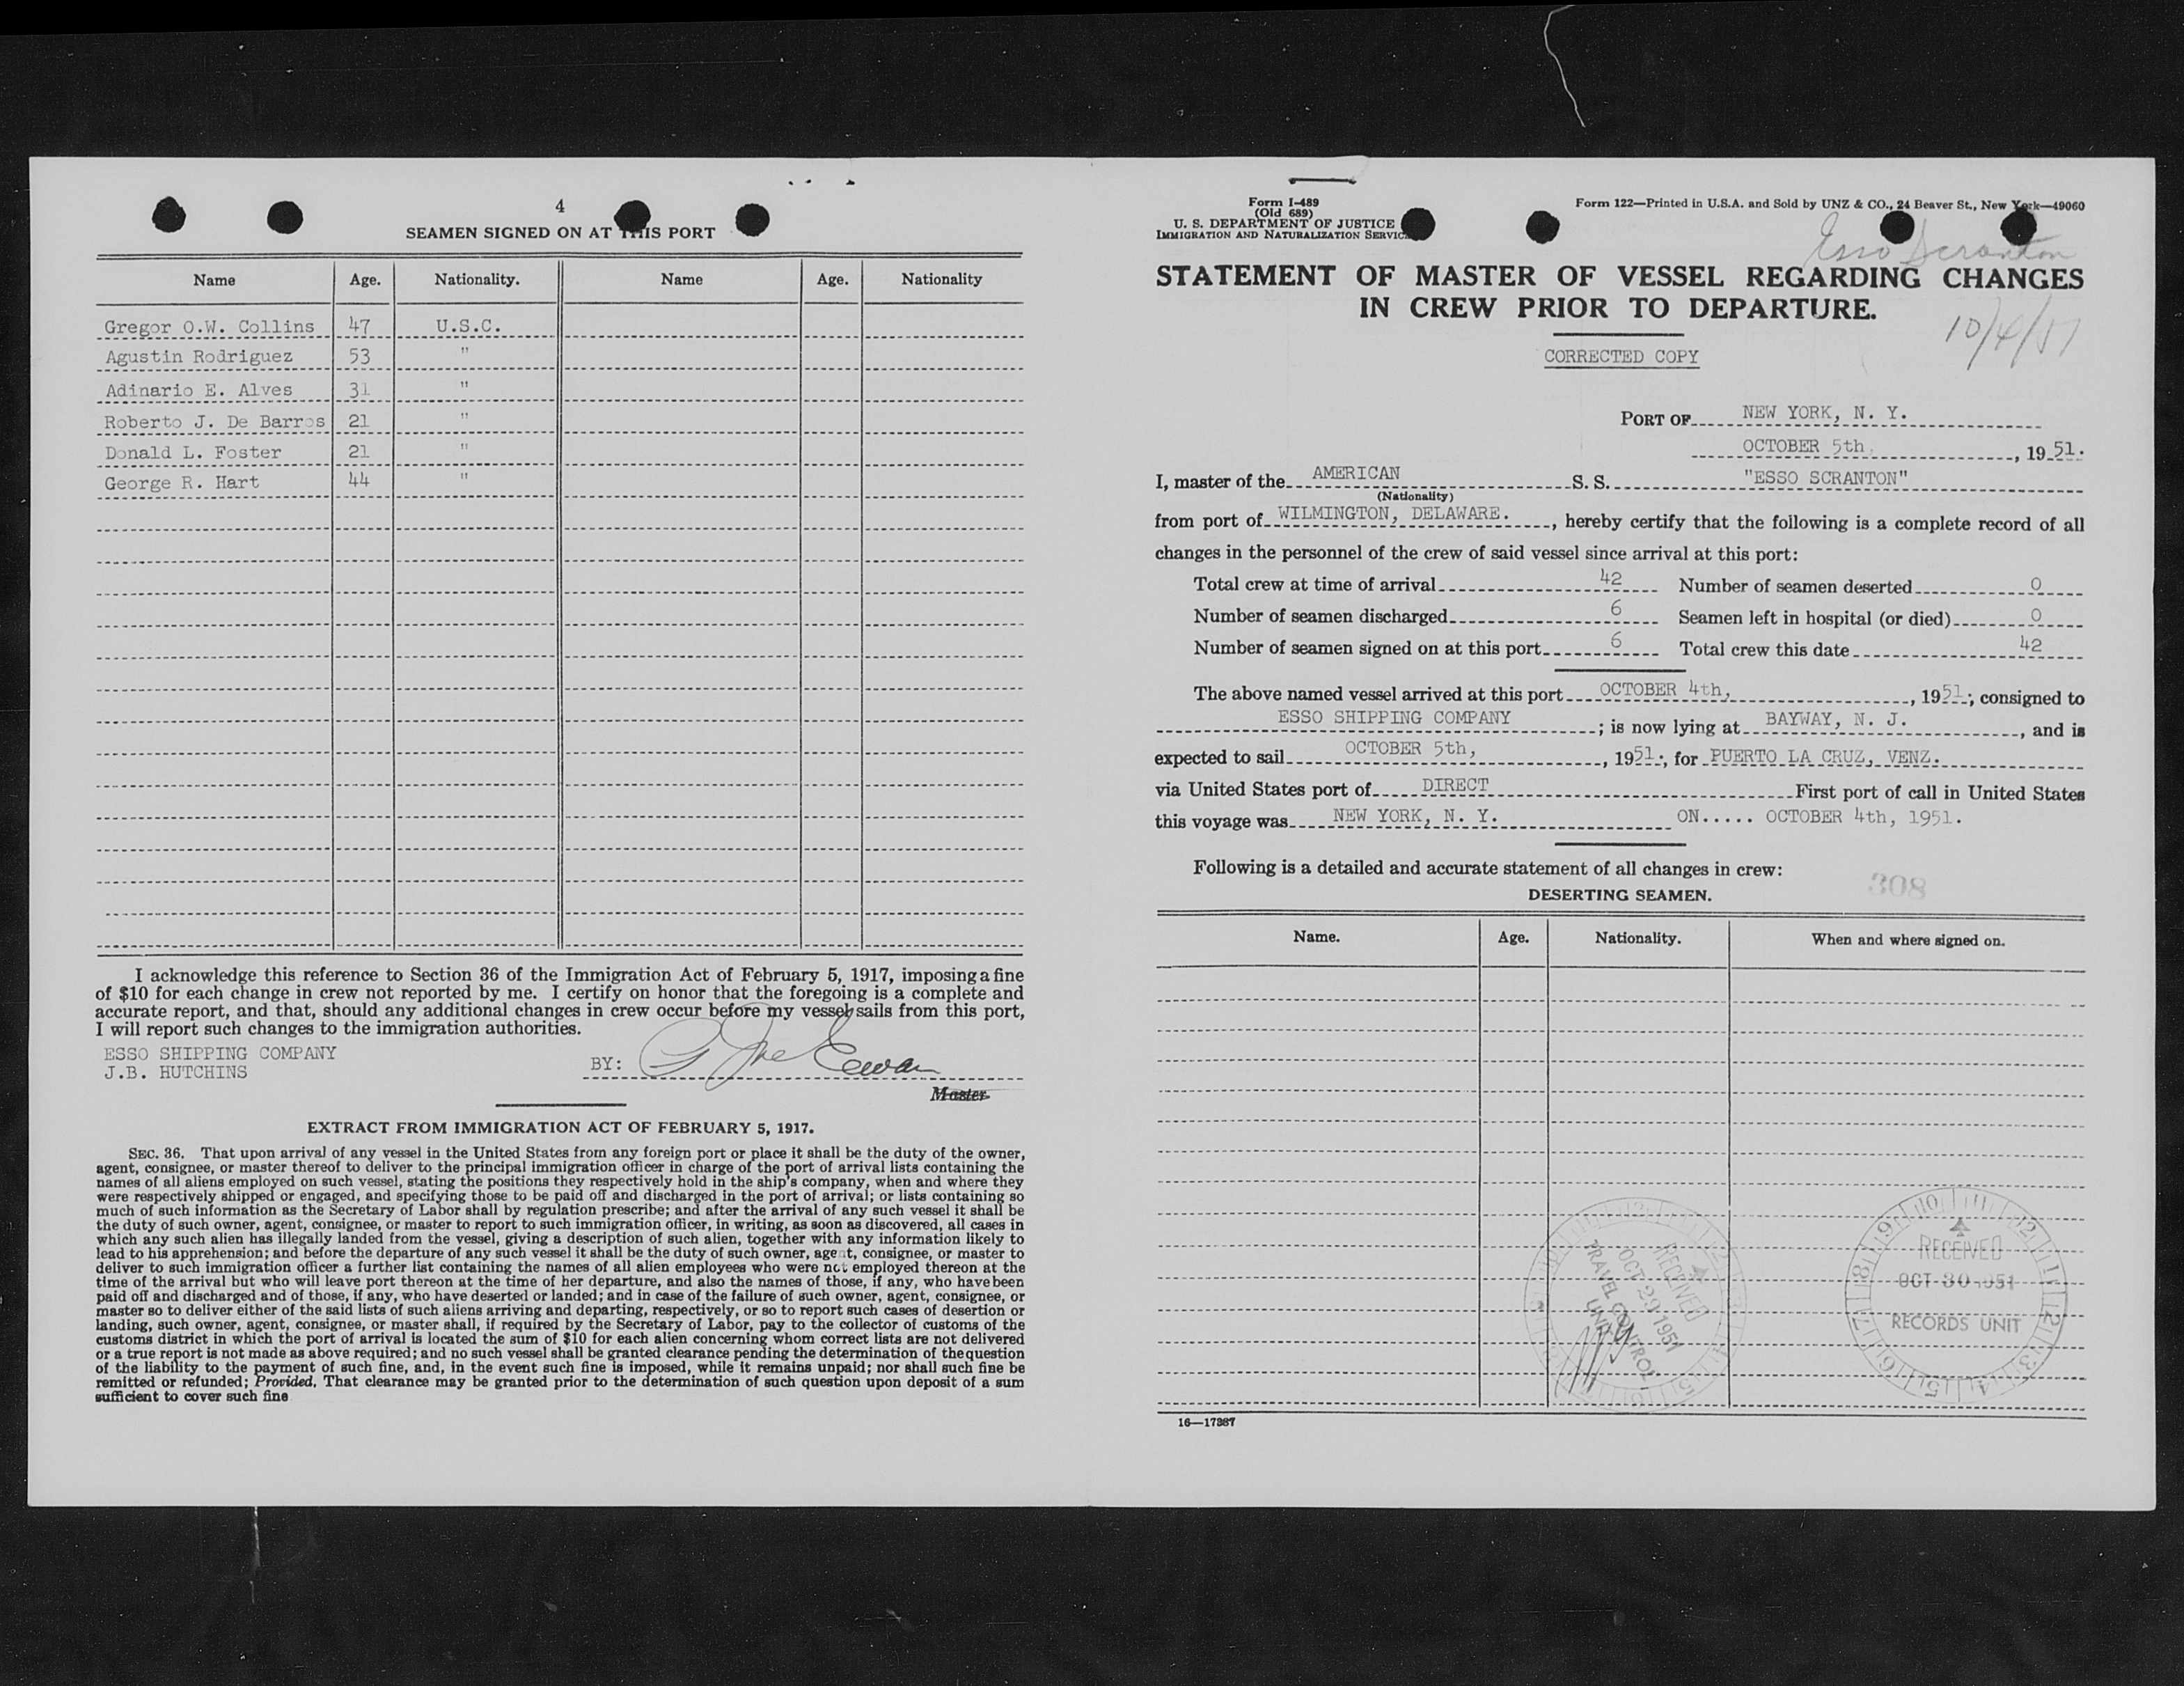 4
SEAMEN SIGNED ON AT THIS PORT
Name Age. Nationality. Name Age. Nationality
Gregor O.W. Collins 47 U.S.C.
Agustin Rodriguez 53 "
Adinario E. Alves 31 "
Roberto J. De Barros 21 "
Donald L. Foster 21 "
George R. Hart 44 "
I acknowledge this reference to Section 36 of the Immigration Act of February 5, 1917, imposing a fine
of $10 for each change in crew not reported by me. I certify on honor that the foregoing is a complete and
accurate report, and that, should any additional changes in crew occur before my vessel sails from this port,
I will report such changes to the immigration authorities.
ESSO SHIPPING COMPANY
J.B. HUTCHINS
BY:
Master.
EXTRACT FROM IMMIGRATION ACT OF FEBRUARY 5, 1917.
SEC. 36. That upon arrival of any vessel in the United States from any foreign port or place it shall be the duty of the owner,
agent, consignee, or master thereof to deliver to the principal immigration officer in charge of the port of arrival lists containing the
names of all aliens employed on such vessel, stating the positions they respectively hold in the ship's company, when and where they
were respectively shipped or engaged, and specifying those to be paid off and discharged in the port of arrival; or lists containing so
much of such information as the Secretary of Labor shall by regulation prescribe; and after the arrival of any such vessel it shall be
the duty of such owner, agent, consignee, or master to report to such immigration officer, in writing, as soon as discovered, all cases in
which any such alien has illegally landed from the vessel, giving a description of such alien, together with any information likely to
lead to his apprehension; and before the departure of any such vessel it shall be the duty of such owner, agent, consignee, or master to
deliver to such immigration officer a further list containing the names of all alien employees who were not employed thereon at the
time of the arrival but who will leave port thereon at the time of her departure, and also the names of those, if any, who have been
paid off and discharged and of those, if any, who have deserted or landed; and in case of the failure of such owner, agent, consignee, or
master so to deliver either of the said lists of such aliens arriving and departing, respectively, or so to report such cases of desertion or
landing, such owner, agent, consignee, or master shall, if required by the Secretary of Labor, pay to the collector of customs of the
customs district in which the port of arrival is located the sum of $10 for each alien concerning whom correct lists are not delivered
or a true report is not made as above required; and no such vessel shall be granted clearance pending the determination of the question
of the liability to the payment of such fine, and, in the event such fine is imposed, while it remains unpaid; nor shall such fine be
remitted or refunded; Provided, That clearance may be granted prior to the determination of such question upon deposit of a sum
sufficient to cover such fine
Form I-489
(Old 689)
U. S. DEPARTMENT OF JUSTICE
IMMIGRATION AND NATURALIZATION SERVICE
Form 122—Printed in U.S.A. and Sold by UNZ & CO., 24 Beaver St., New York—49060
Esso Scranton
STATEMENT OF MASTER OF VESSEL REGARDING CHANGES
IN CREW PRIOR TO DEPARTURE.
10/4/51
CORRECTED COPY
PORT OF NEW YORK, N. Y.
OCTOBER 5th, 1951.
I, master of the AMERICAN S. S. "ESSO SCRANTON"
(Nationality)
from port of WILMINGTON, DELAWARE., hereby certify that the following is a complete record of all
changes in the personnel of the crew of said vessel since arrival at this port:
Total crew at time of arrival 42 Number of seamen deserted 0
Number of seamen discharged 6 Seamen left in hospital (or died) 0
Number of seamen signed on at this port 6 Total crew this date 42
The above named vessel arrived at this port OCTOBER 4th, , 1951.; consigned to
ESSO SHIPPING COMPANY ; is now lying at BAYWAY, N. J. , and is
expected to sail OCTOBER 5th, , 1951.; for PUERTO LA CRUZ, VENZ.
via United States port of DIRECT First port of call in United States
this voyage was NEW YORK, N. Y. ON..... OCTOBER 4th, 1951.
Following is a detailed and accurate statement of all changes in crew:
308
DESERTING SEAMEN.
Name. Age. Nationality. When and where signed on.
RECEIVED
OCT 29 1951
TRAVEL CONTROL
UNIT
RECEIVED
OCT 30 1951
RECORDS UNIT
16—17387